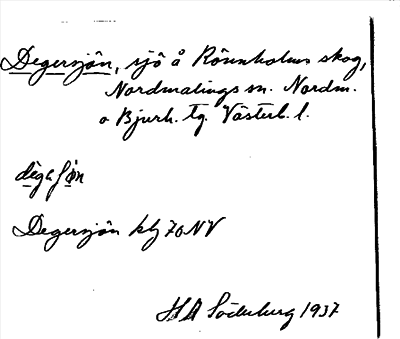 Degersjön, sjö å Rönnholms skog,
Nordmalings sn. Nordm.
o Bjurh. tg. Västerb. l.
Degersjön kbj 70 NV
H A Söderberg 1937